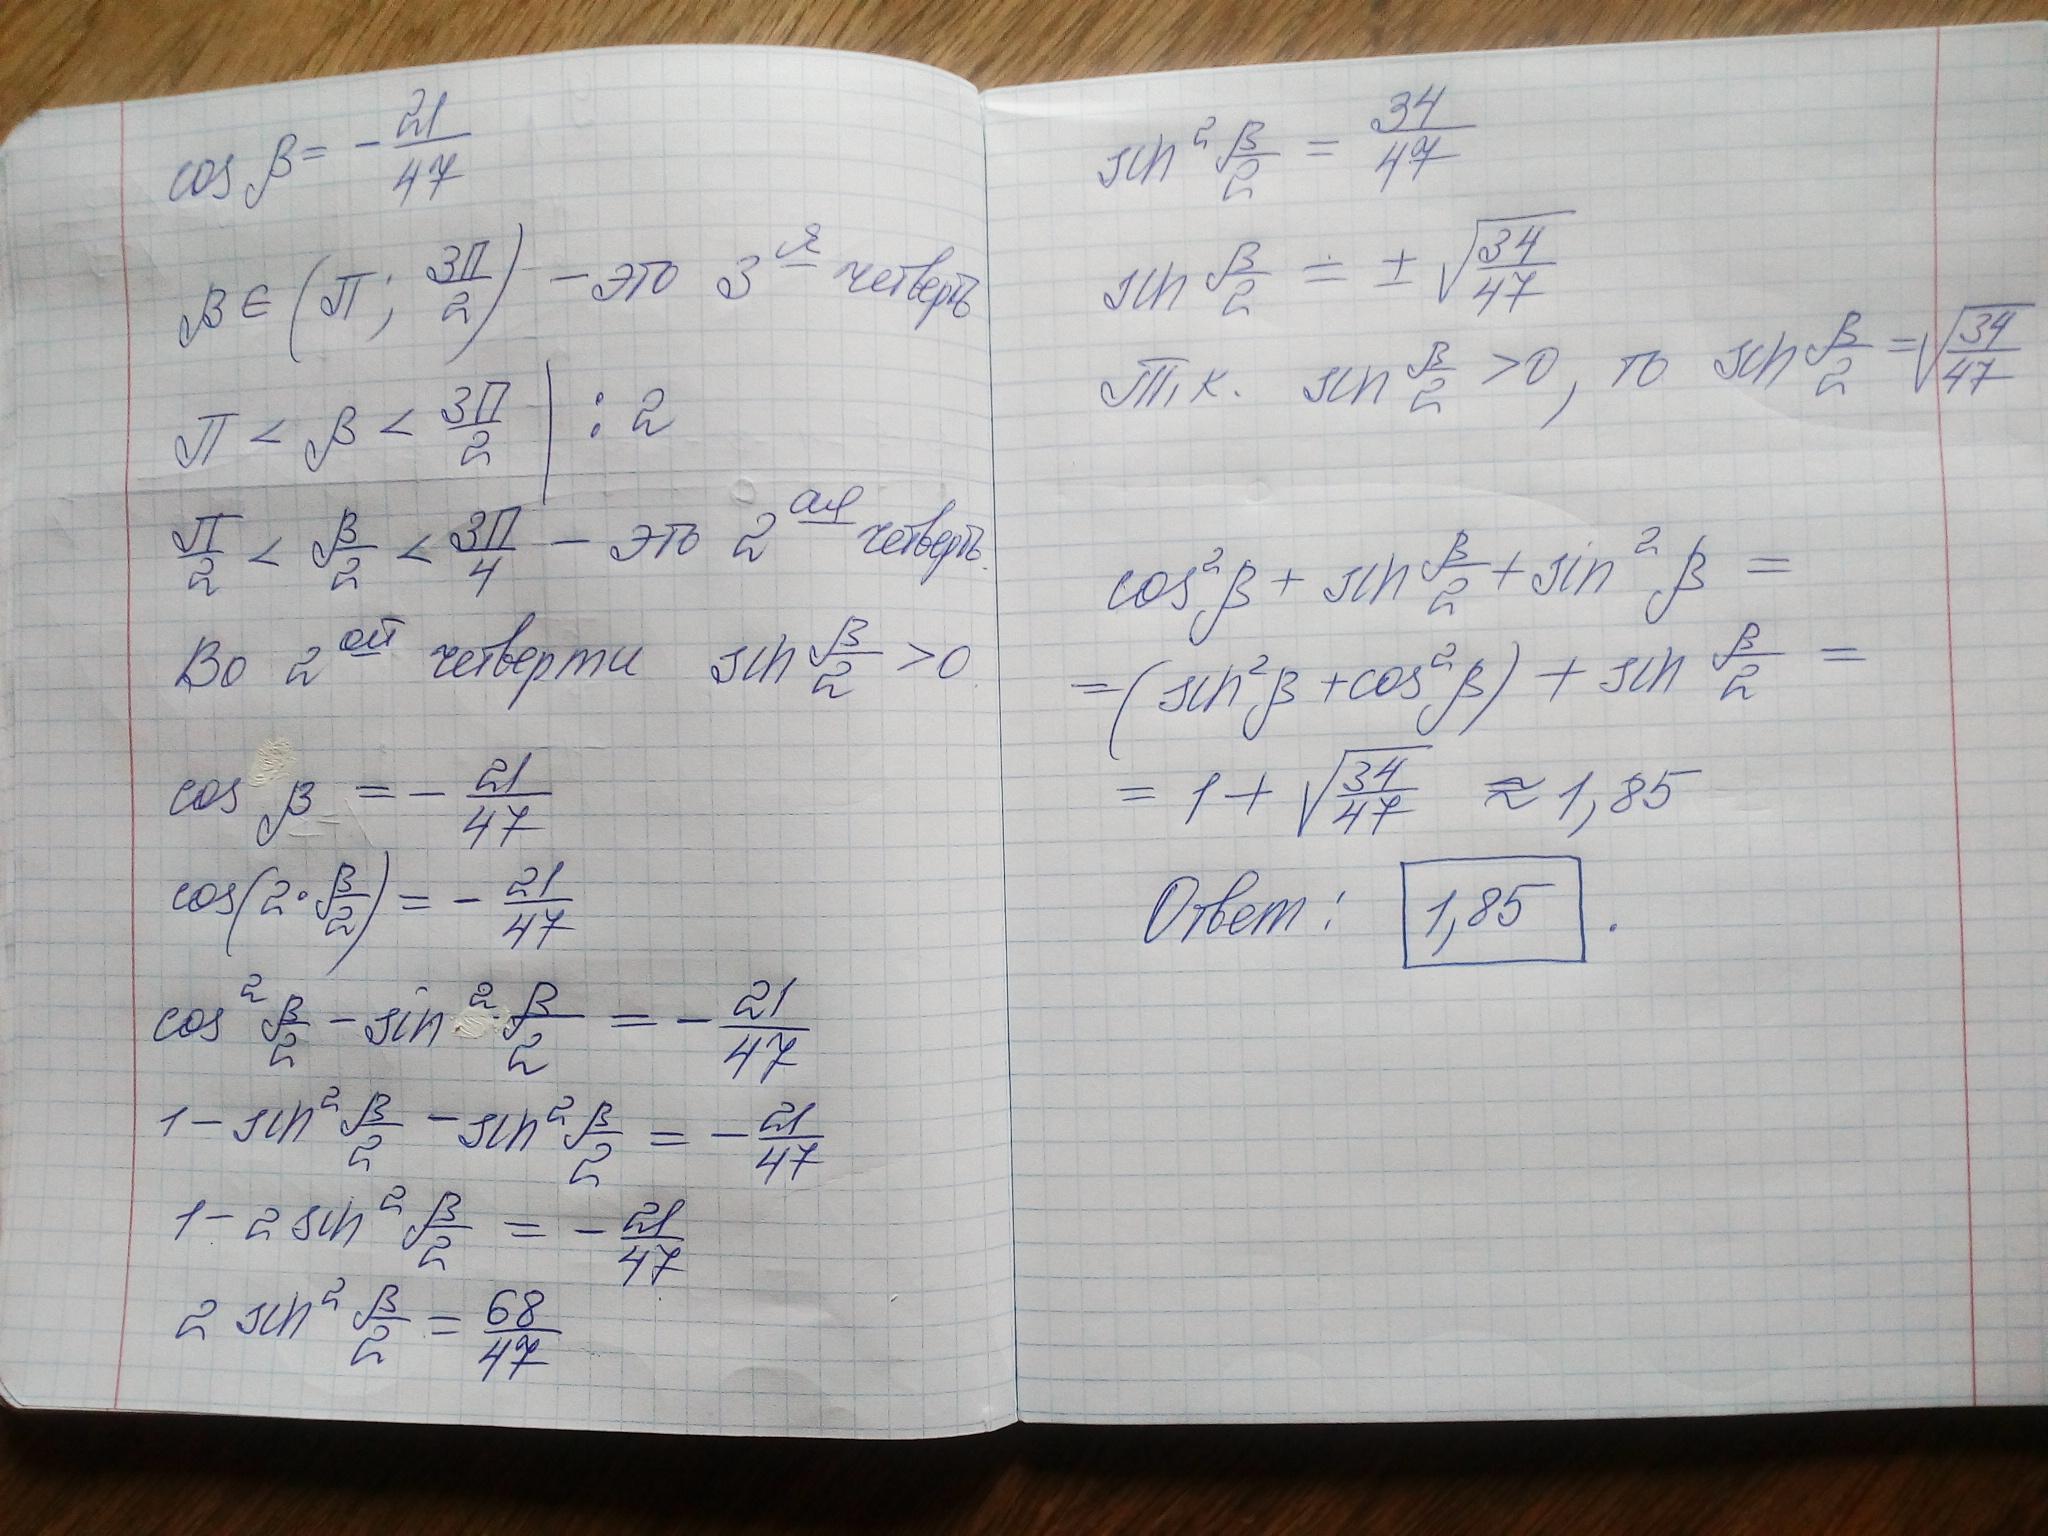 cos β = - 21/47
β ∈ (π; 3π/2) - это 3я четверть
π < β < 3π/2 | : 2
π/2 < β/2 < 3π/4 - это 2ая четверть.
Во 2ой четверти sin β/2 > 0
cos β = - 21/47
cos(2 · β/2) = - 21/47
cos² β/2 - sin² β/2 = - 21/47
1 - sin² β/2 - sin² β/2 = - 21/47
1 - 2 sin² β/2 = - 21/47
2 sin² β/2 = 68/47
sin² β/2 = 34/47
sin β/2 = ± √(34/47)
Т.к. sin β/2 > 0, то sin β/2 = √(34/47)
cos² β + sin β/2 + sin² β =
= (sin² β + cos² β) + sin β/2 =
= 1 + √(34/47) ≈ 1,85
Ответ: 1,85 .